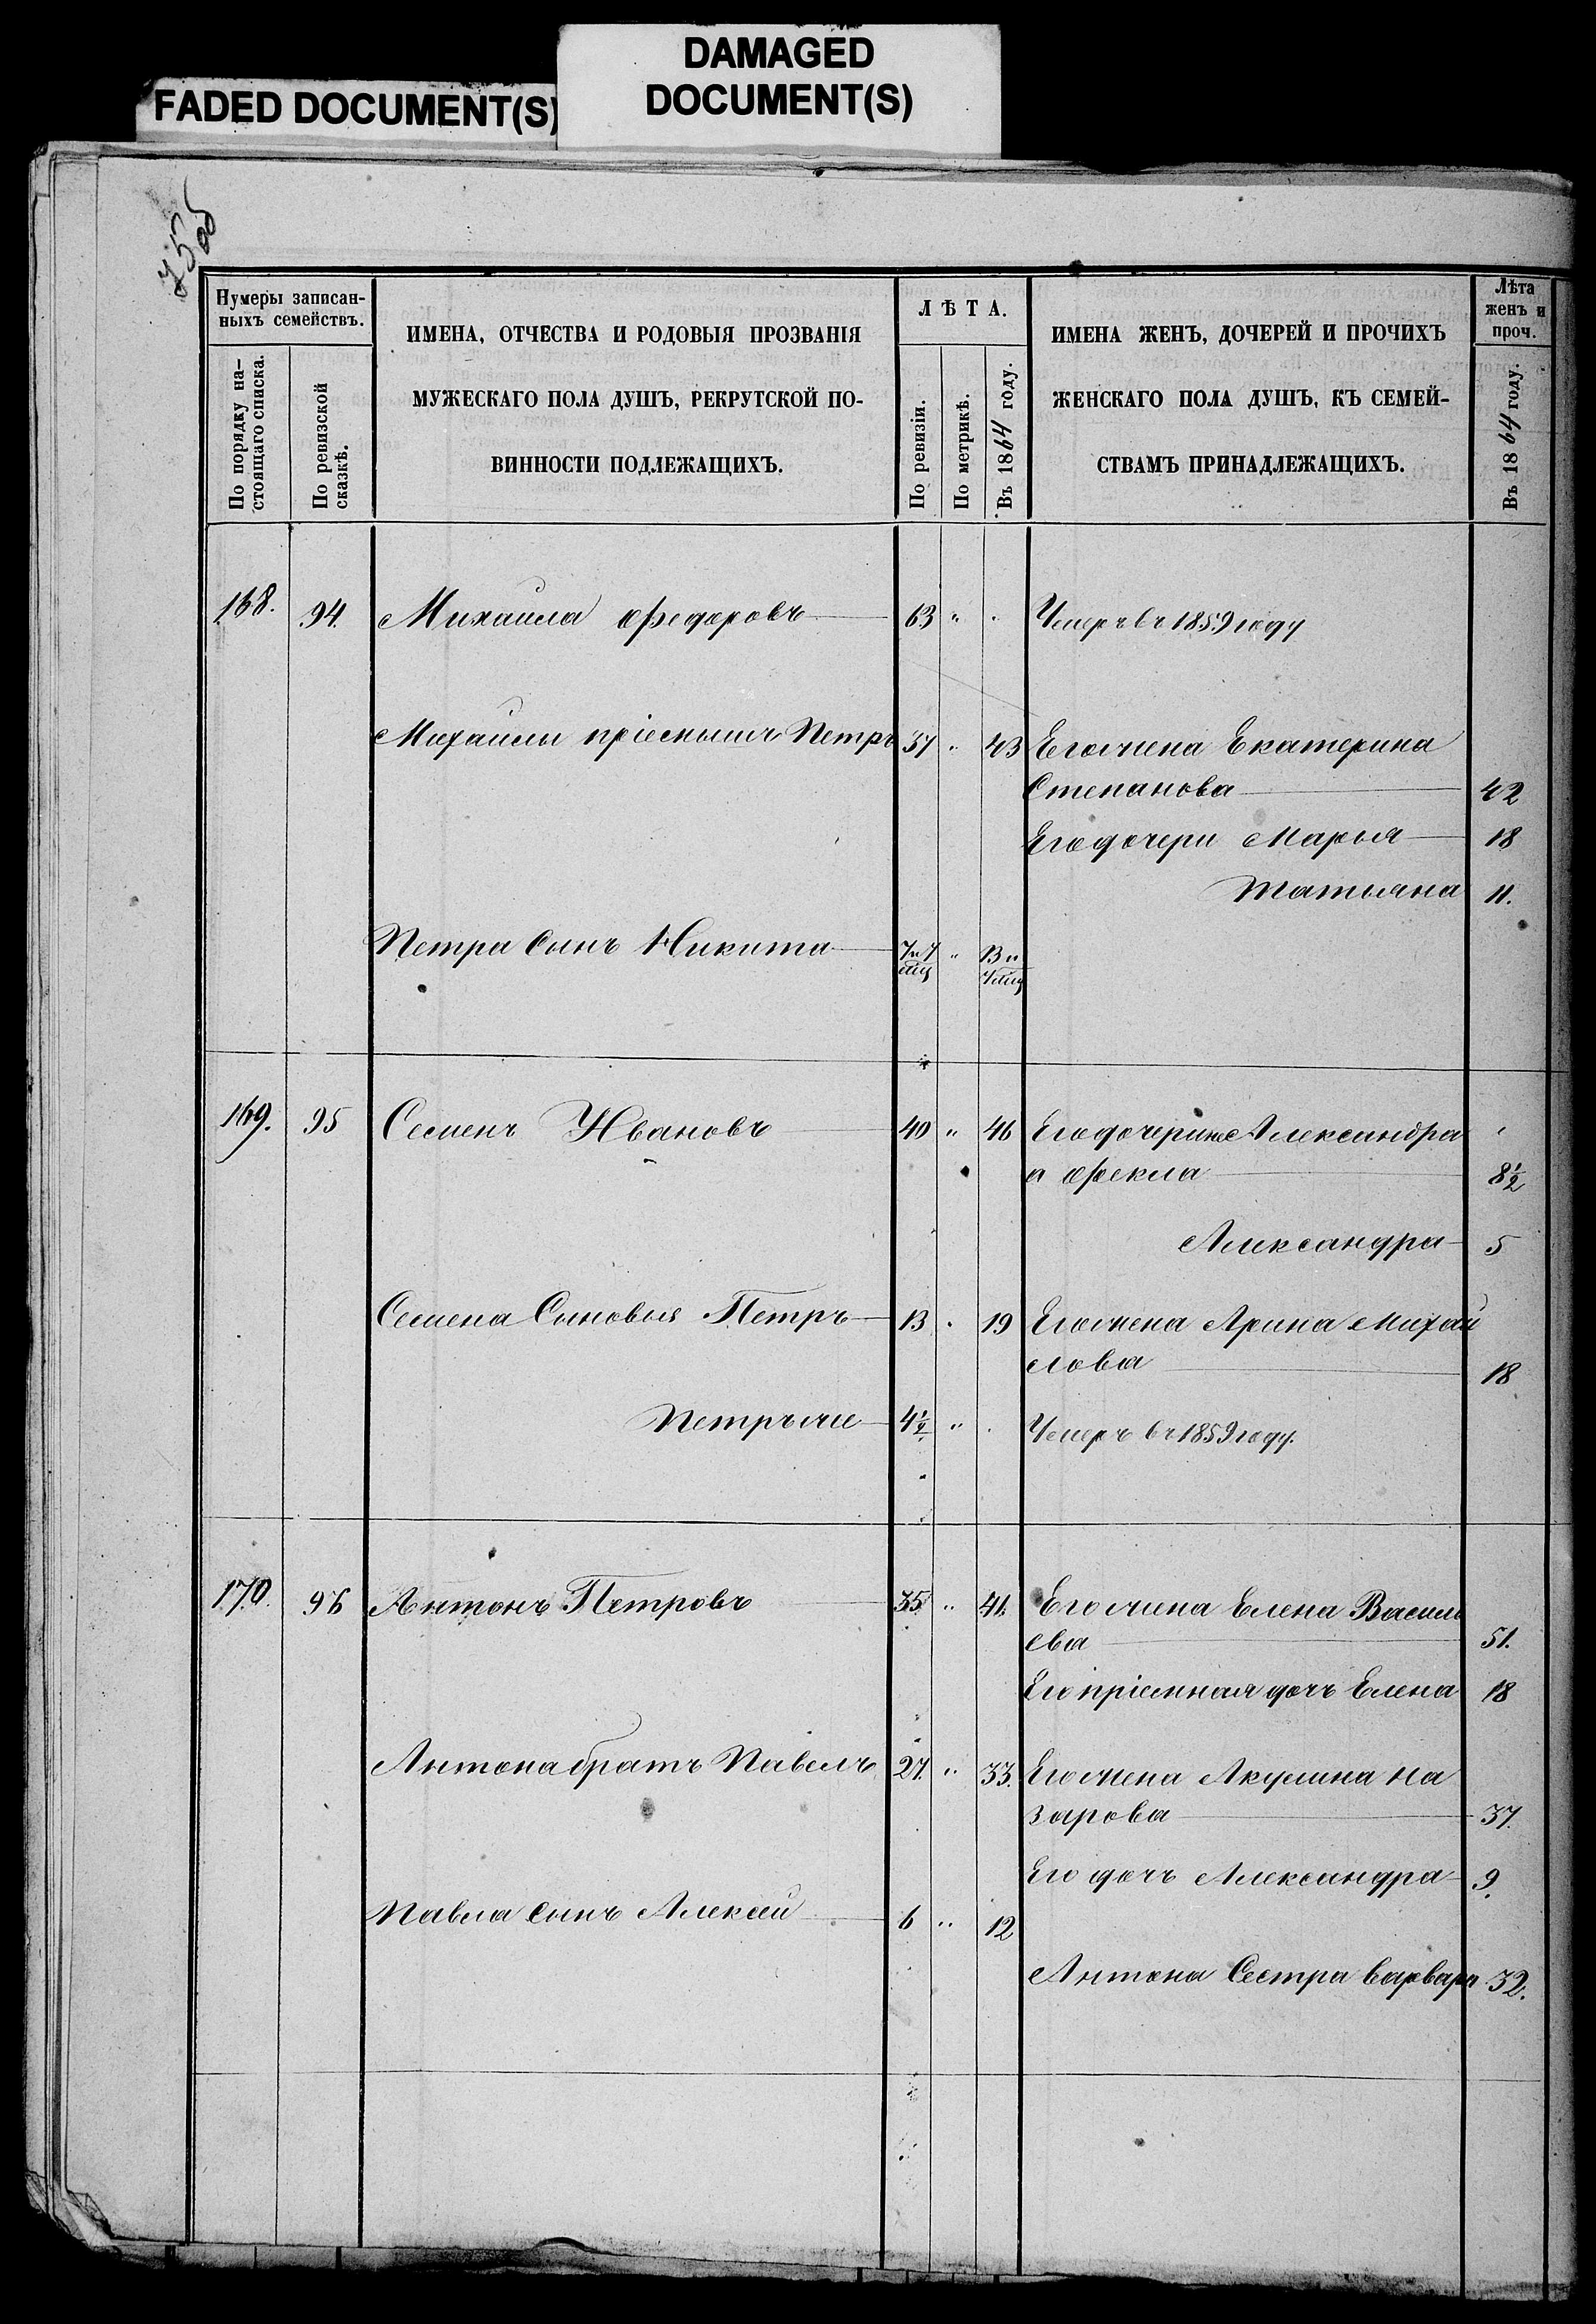 FADED DOCUMENT(S)
DAMAGED
DOCUMENT(S)
75об
Нумеры записан-
ныхъ семействъ.
По порядку на-
стоящаго списка.
По ревизской
сказкѣ.
ИМЕНА, ОТЧЕСТВА И РОДОВЫЯ ПРОЗВАНІЯ
МУЖЕСКАГО ПОЛА ДУШЪ, РЕКРУТСКОЙ ПО-
ВИННОСТИ ПОДЛЕЖАЩИХЪ.
ЛѢТА.
По ревизіи.
По метрикѣ.
Въ 1864 году.
ИМЕНА ЖЕНЪ, ДОЧЕРЕЙ И ПРОЧИХЪ
ЖЕНСКАГО ПОЛА ДУШЪ, КЪ СЕМЕЙ-
СТВАМЪ ПРИНАДЛЕЖАЩИХЪ.
Лѣта
женъ и
проч.
Въ 1864 году.
168. 94. Михаила Федоровъ 63 " " Умеръ въ 1859 году
Михаилы пріемышъ Петръ 37 " 43 Его жена Екатерина
Степанова 42
Его дочери Марья 18
Татьяна 11.
Петра сынъ Никита 7 и 7 " 13 и
мц 7 мц
169. 95 Семенъ Ивановъ 40 " 46 Его дочери Александра "
а Фекла 8½
Александра 5
Семена Сыновья Петръ 13 " 19 Его жена Арина Михай
лова 18
Петръ же 4½ " " Умеръ въ 1859 году.
170. 96 Антонъ Петровъ 35 " 41 Его жена Елена Василь
ева 51.
Его пріемная дочь Елена 18
Антона братъ Павелъ 27. " 33. Его жена Акулина На
зарова 37.
Его дочь Александра 9.
Павла сынъ Алексей 6 " 12
Антона Сестра Варвара 32.